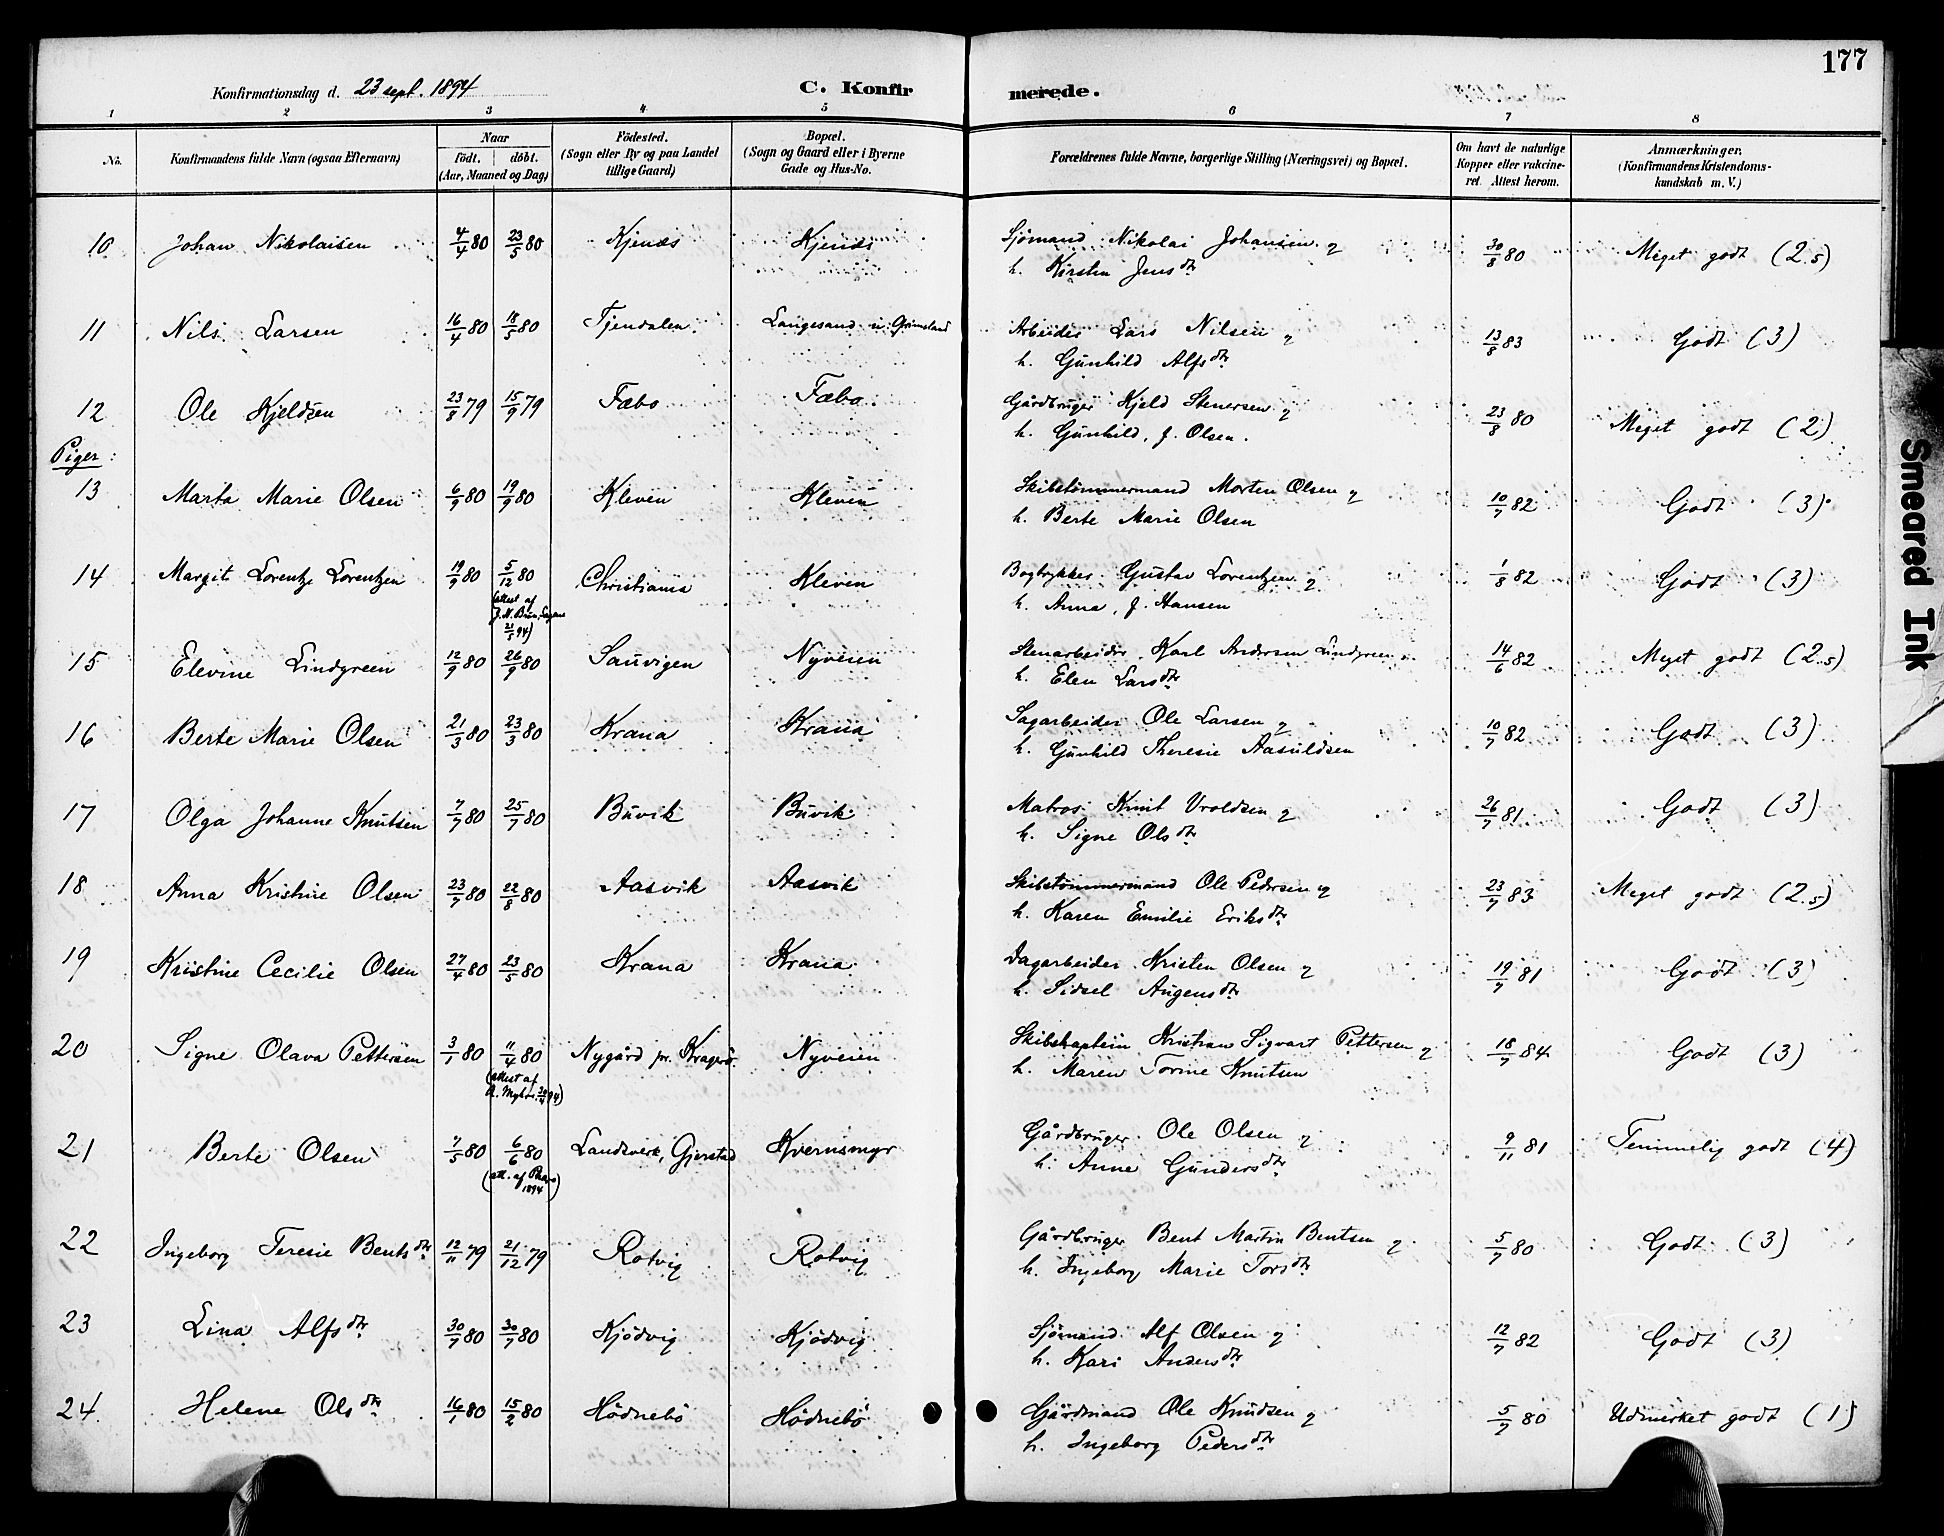 177
Konfirmationsdag d. 23 sept. 1894 C. Konfirmerede.
1 2 3 4 5 6 7 8
No. Konfirmandens fulde Navn (ogsaa Efternavn) Naar födt. döbt. (Aar, Maaned og Dag) Födested. (Sogn eller By og paa Landet tillige Gaard) Bopæl. (Sogn og Gaard eller i Byerne Gade og Hus-No. Forældrenes fulde Navne, borgerlige Stilling (Næringsvei) og Bopæl. Om havt de naturlige Kopper eller vakcineret. Attest herom. Anmærkninger. (Konfirmandens Kristendomskundskab m. V.)
10 Johan Nikolaisen 4/4 80 23/5 80 Kjends Kjends Sjömand Nikolai Johansen og 30/8 80 Meget godt (2.5)
h. Kirstin Jensdtr
11 Nils Larsen 16/4 80 18/5 80 Tjendalen Langesand u. Grimsland Arbeider Lars Nilsen og 13/8 83 Godt (3)
h. Gunhild Alfsdtr
12 Ole Kjeldsen 23/8 79 15/9 79 Fæbo Fæbo Gårdbruger Kjeld Stenersen og 23/8 80 Meget godt (2)
h. Gunhild, f. Olsen.
Piger:
13 Marta Marie Olsen 6/9 80 19/9 80 Kleven Kleven Skibstömmermand Morten Olsen og 10/7 82 Godt (3)
h. Berte Marie Olsen
14 Margit Lorentze Lorentzen 19/9 80 5/12 80 Christiania Kleven Bogtrykker Gustav Lorentzen og 1/8 82 Godt (3)
(attest af J. N. Brun, 21/5 94) h. Anna, f. Hansen
15 Elevine Lindgreen 12/9 80 26/9 80 Sauvigen Nyveien Stenarbeider Karl Andersen Lindgreen 14/6 82 Meget godt (2.5)
h. Elen Larsdtr
16 Berte Marie Olsen 21/3 80 23/3 80 Krana Krana Sagarbeider Ole Larsen og 10/7 82 Godt (3)
h. Gunhild Theresie Aasuldsen
17 Olga Johanne Knutsen 7/7 80 25/7 80 Buvik Buvik Matros Knut Vroldsen og 26/7 81 Godt (3)
h. Signe Olsdtr
18 Anna Kristine Olsen 23/7 80 22/8 80 Aasvik Aasvik Skibstömmermand Ole Pedersen og 23/7 83 Meget godt (2.5)
h. Karen Emilie Eriksdtr
19 Kristine Cecilie Olsen 27/4 80 23/5 80 Krana Krana Dagarbeider Kristen Olsen og 19/7 81 Godt (3)
h. Sidsel Augensdtr
20 Signe Olava Pettersen 3/1 80 11/4 80 Nygård pr. Kragerö Nyveien Skibskaptein Kristian Sigvart Pettersen og 18/7 84 Godt (3)
(attest af 94) h. Maren Torine Knutsen
21 Berte Olsen 7/5 80 6/6 80 Landsverk, Gjerstad Kvernsmyr Gårdbruger Ole Olsen og 9/11 81 Temmelig godt (4)
(att. af 1894) h. Anne Gundersdtr
22 Ingeborg Teresie Bentsdtr 12/11 79 21/12 79 Rotvig Rotvig Gårdbruger Bent Martin Bentsen og 5/7 80 Godt (3)
h. Ingeborg Marie Torsdtr
23 Lina Alfsdtr 30/7 80 30/7 80 Kjödvig Kjödvig Sjömand Alf Olsen og 12/7 82 Godt (3)
h. Kari Andersdtr
24 Helene Olsdtr 16/1 80 15/2 80 Hödnebö Hödnebö Gårdmand Ole Knudsen og 5/7 80 Udmerket godt (1)
h. Ingeborg Pedersdtr
Smeared Ink